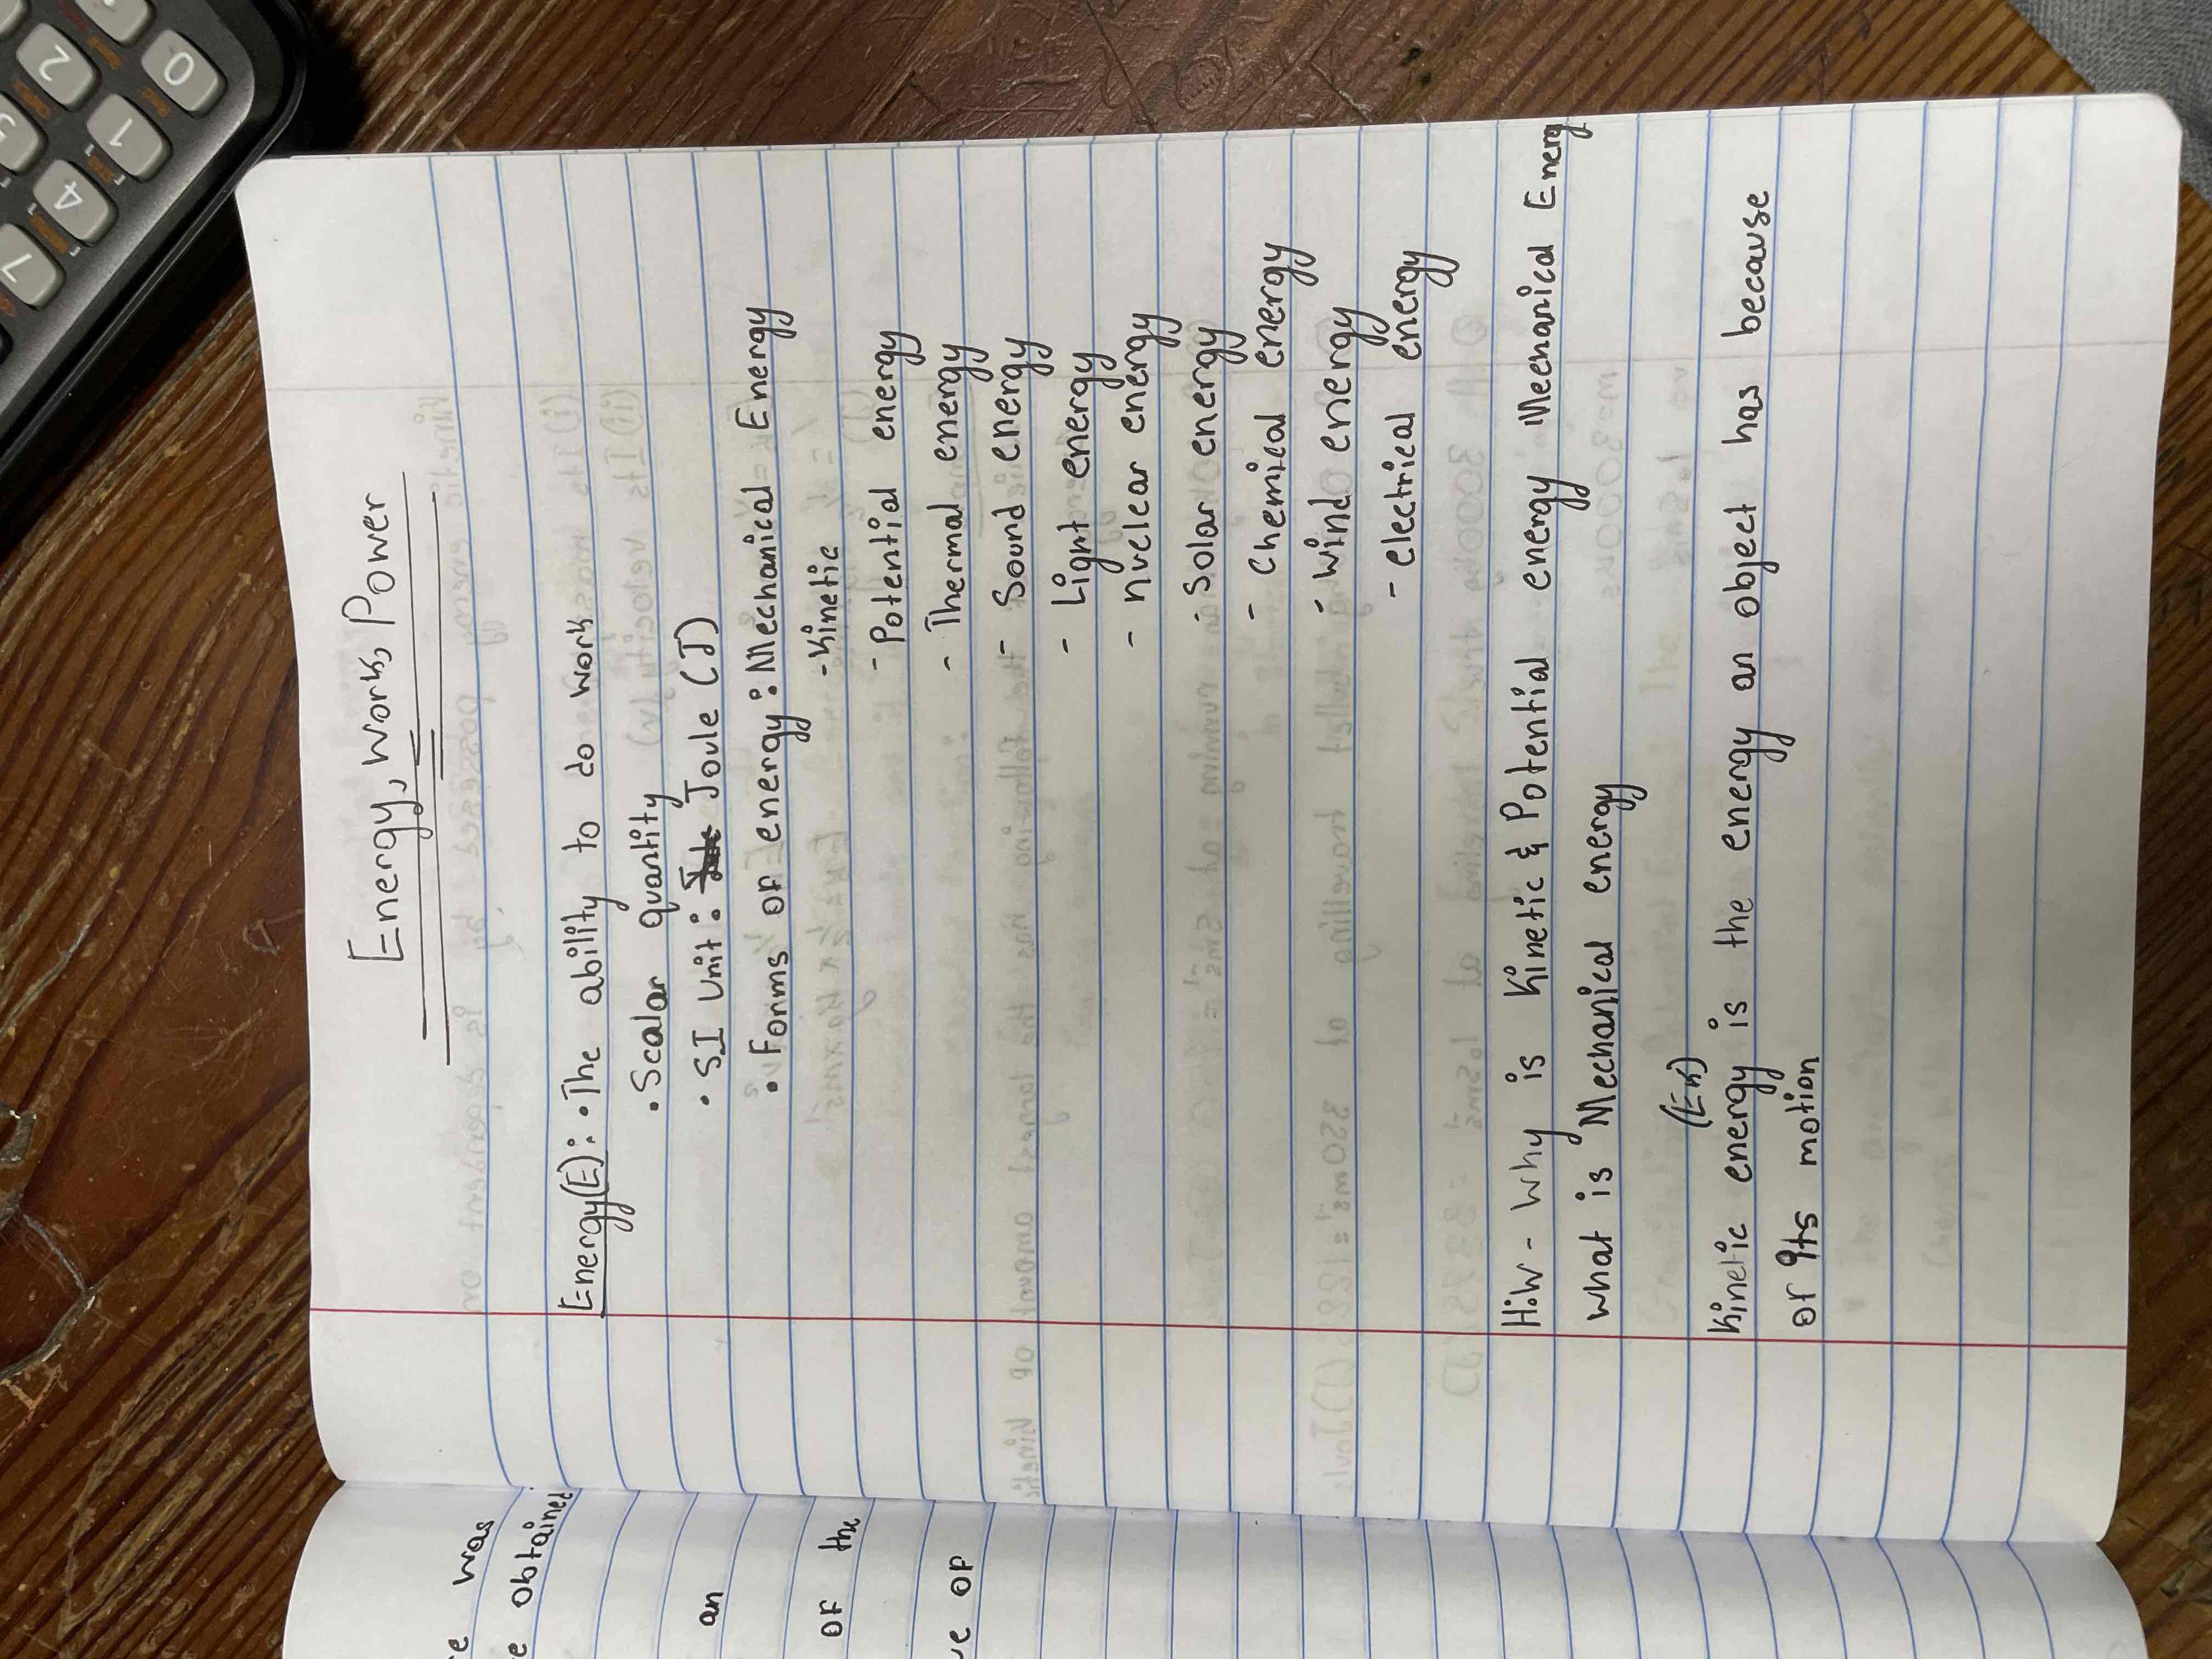 Energy, Work, Power
e was
e obtained
an
of the
ve of
Energy(E): • The ability to do work
• Scalar quantity
• SI Unit: Joule (J)
• Forms of energy: Mechanical Energy
- Kinetic
- Potential energy
- Thermal energy
- Sound energy
- Light energy
- nuclear energy
- Solar energy
- Chemical energy
- Wind energy
- electrical energy
H.W - Why is Kinetic & Potential energy Mechanical Energ
what is Mechanical energy
(Ek)
Kinetic energy is the energy an object has because
of its motion
7
4
1
0
5
2